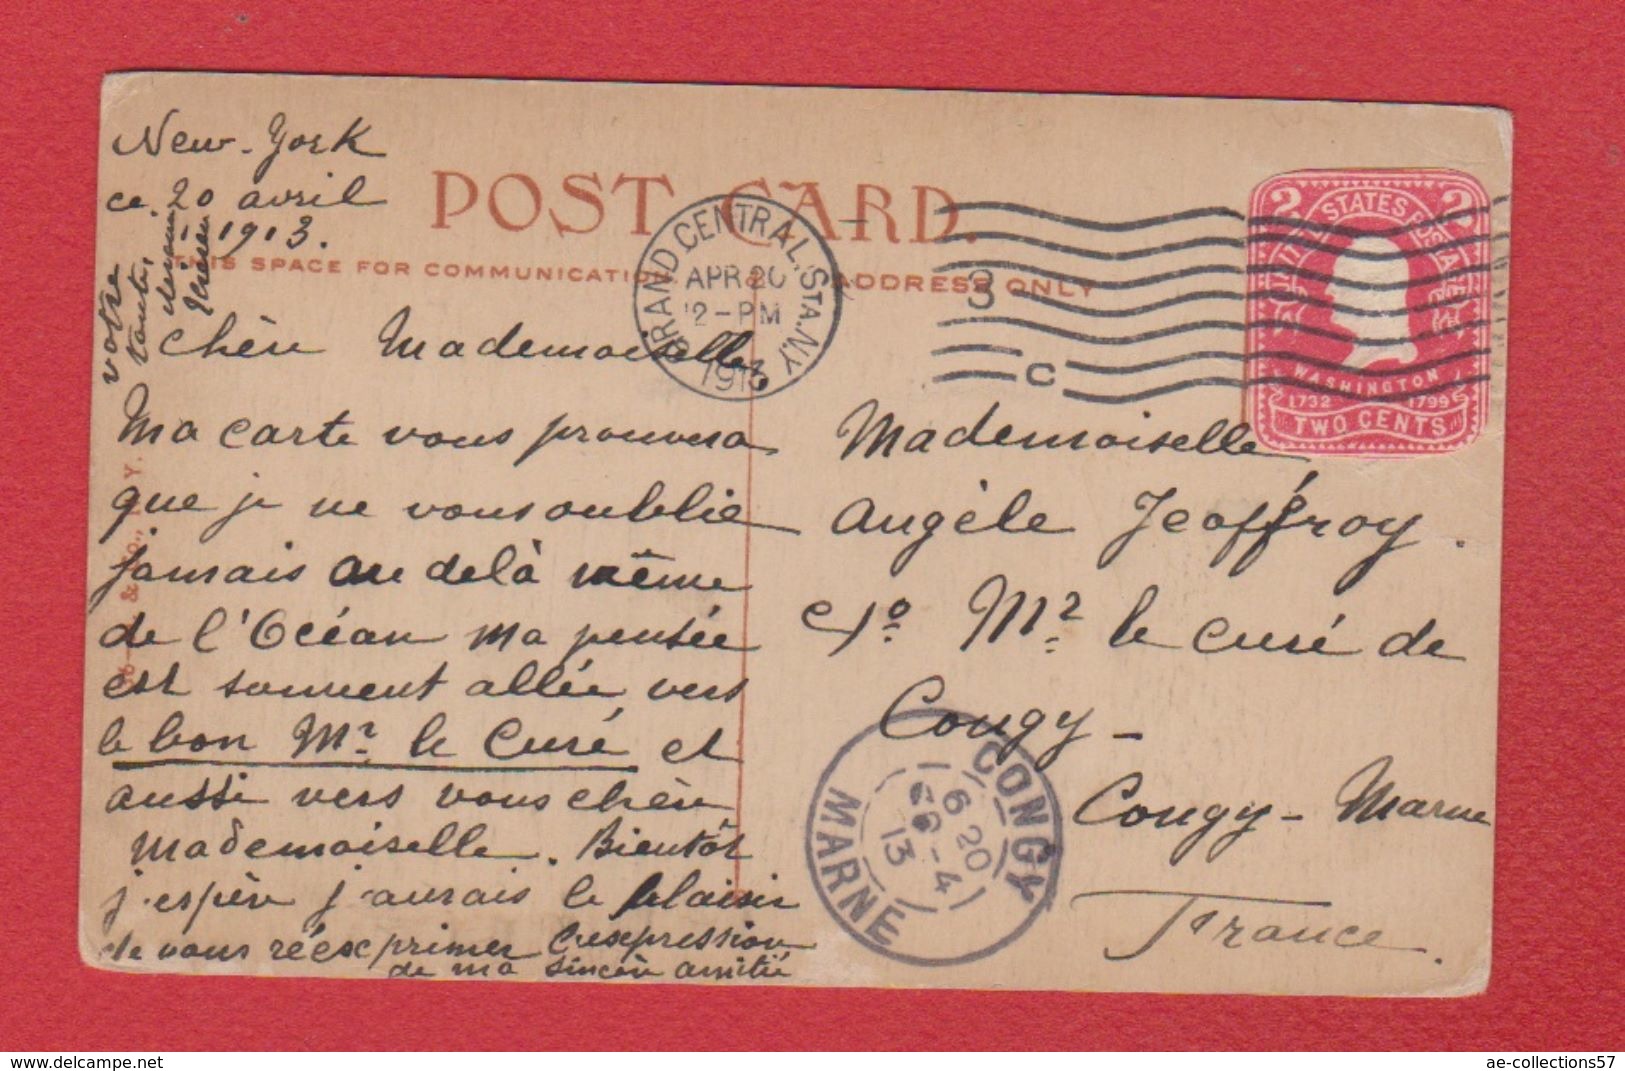 New-York
ce 20 avril
1913.
POST CARD.
THIS SPACE FOR COMMUNICATION & ADDRESS ONLY
GRAND CENTRAL STA. N.Y.
APR 20
2-PM
1913
3
C
UNITED STATES POSTAGE
2 2
WASHINGTON
1732 1799
TWO CENTS
Chère Mademoiselle,
Ma carte vous prouvera
que je ne vous oublie
jamais au delà même
de l'Océan ma pensée
est souvent allée vers
le bon Mr. le Curé et
aussi vers vous chère
Mademoiselle. Bientôt
j'espère j'aurais le plaisir
de vous réexprimer l'expression
de ma sincère amitié
votre
toute
Mademoiselle
Angèle Jeoffroy.
c/o Mr. le curé de
Congy-
Congy-Marne
France.
CONGY
MARNE
6 20
-4
13
& Co., N.Y.
ae-collections57